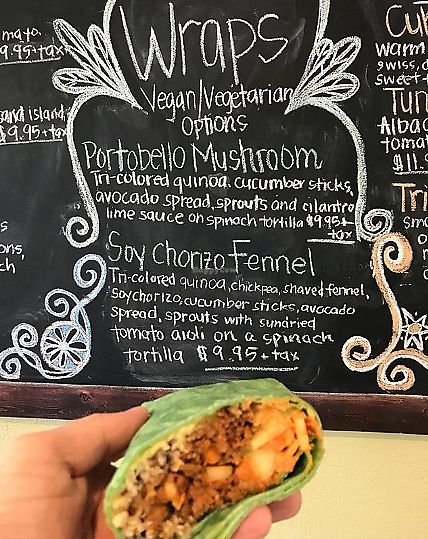 mayo.
9.95+tax
and island
$9.95+tax
ons,
ch
Wraps
Vegan/Vegetarian
Options
Portobello Mushroom
Tri-colored quinoa, cucumber sticks,
avocado spread, sprouts and cilantro
lime sauce on spinach tortilla $9.95+
tax
Soy Chorizo Fennel
Tri-colored quinoa, chickpea, shaved fennel,
Soy chorizo, cucumber sticks, avocado
spread, sprouts with sundried
tomato aioli on a spinach
tortilla $9.95+tax
Cu
warm
swiss, d
sweet
Tun
Alba
tomat
$11.
Tri
smo